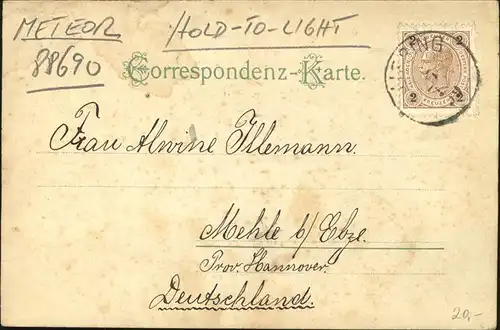 METEOR
88690
HOLD-TO-LIGHT
Correspondenz-Karte.
2 2
2 2
Frau Alwine Illemann.
Mehle b/ Elze.
Prov. Hannover.
Deutschland.
20,-